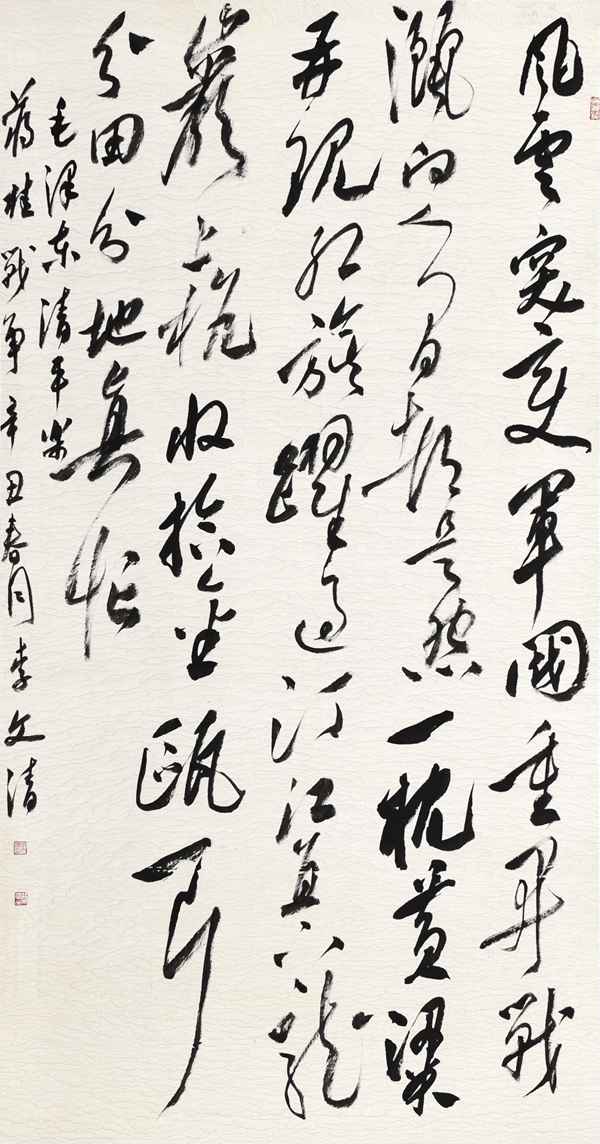 風雲突变軍國重開戰
灑向人间都是怨一枕黄粱
再現紅旗躍過汀江直下龍
巖上杭收拾金甌一片
分田分地真忙
毛澤東清平樂
蔣桂戰争辛丑春月李文清